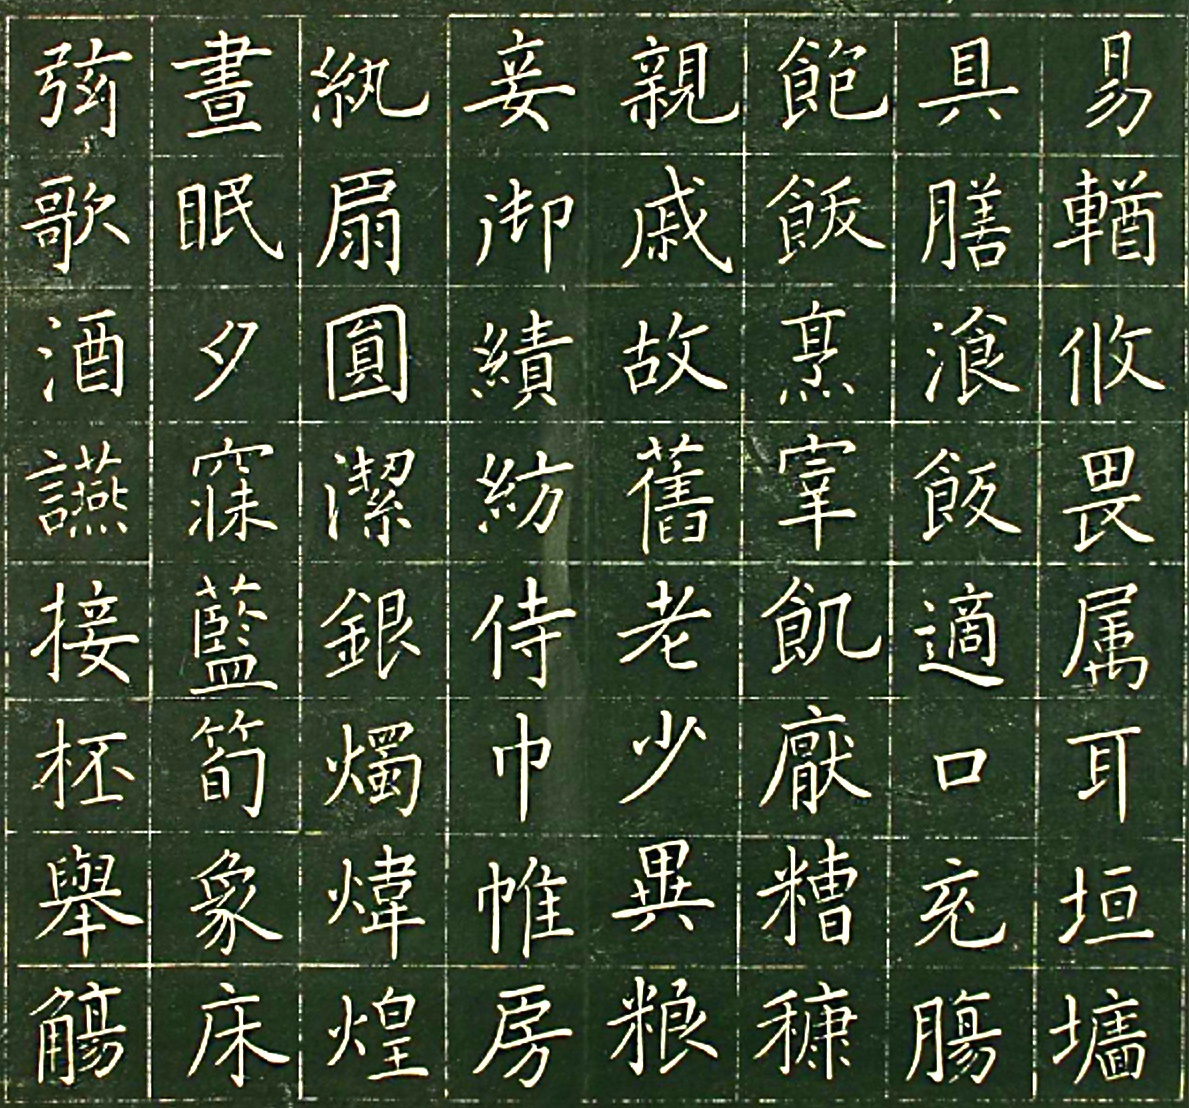 易輶攸畏属耳垣墻
具膳湌飯適口充腸
飽飫烹宰飢厭糟穅
親戚故舊老少異粮
妾御績紡侍巾帷房
紈扇圓潔銀燭煒煌
晝眠夕寐藍筍象床
弦歌酒讌接柸舉觴